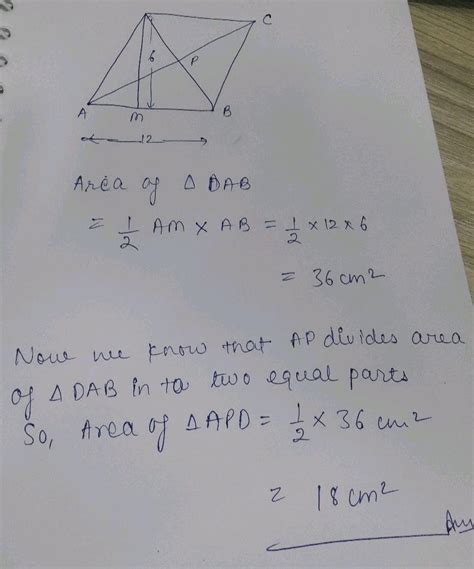 C
6
P
A M B
12
Area of △ DAB
= 1/2 AM × AB = 1/2 × 12 × 6
= 36 cm²
Now we know that AP divides area
of △ DAB in to two equal parts
So, Area of △APD = 1/2 × 36 cm²
= 18 cm²
Ans